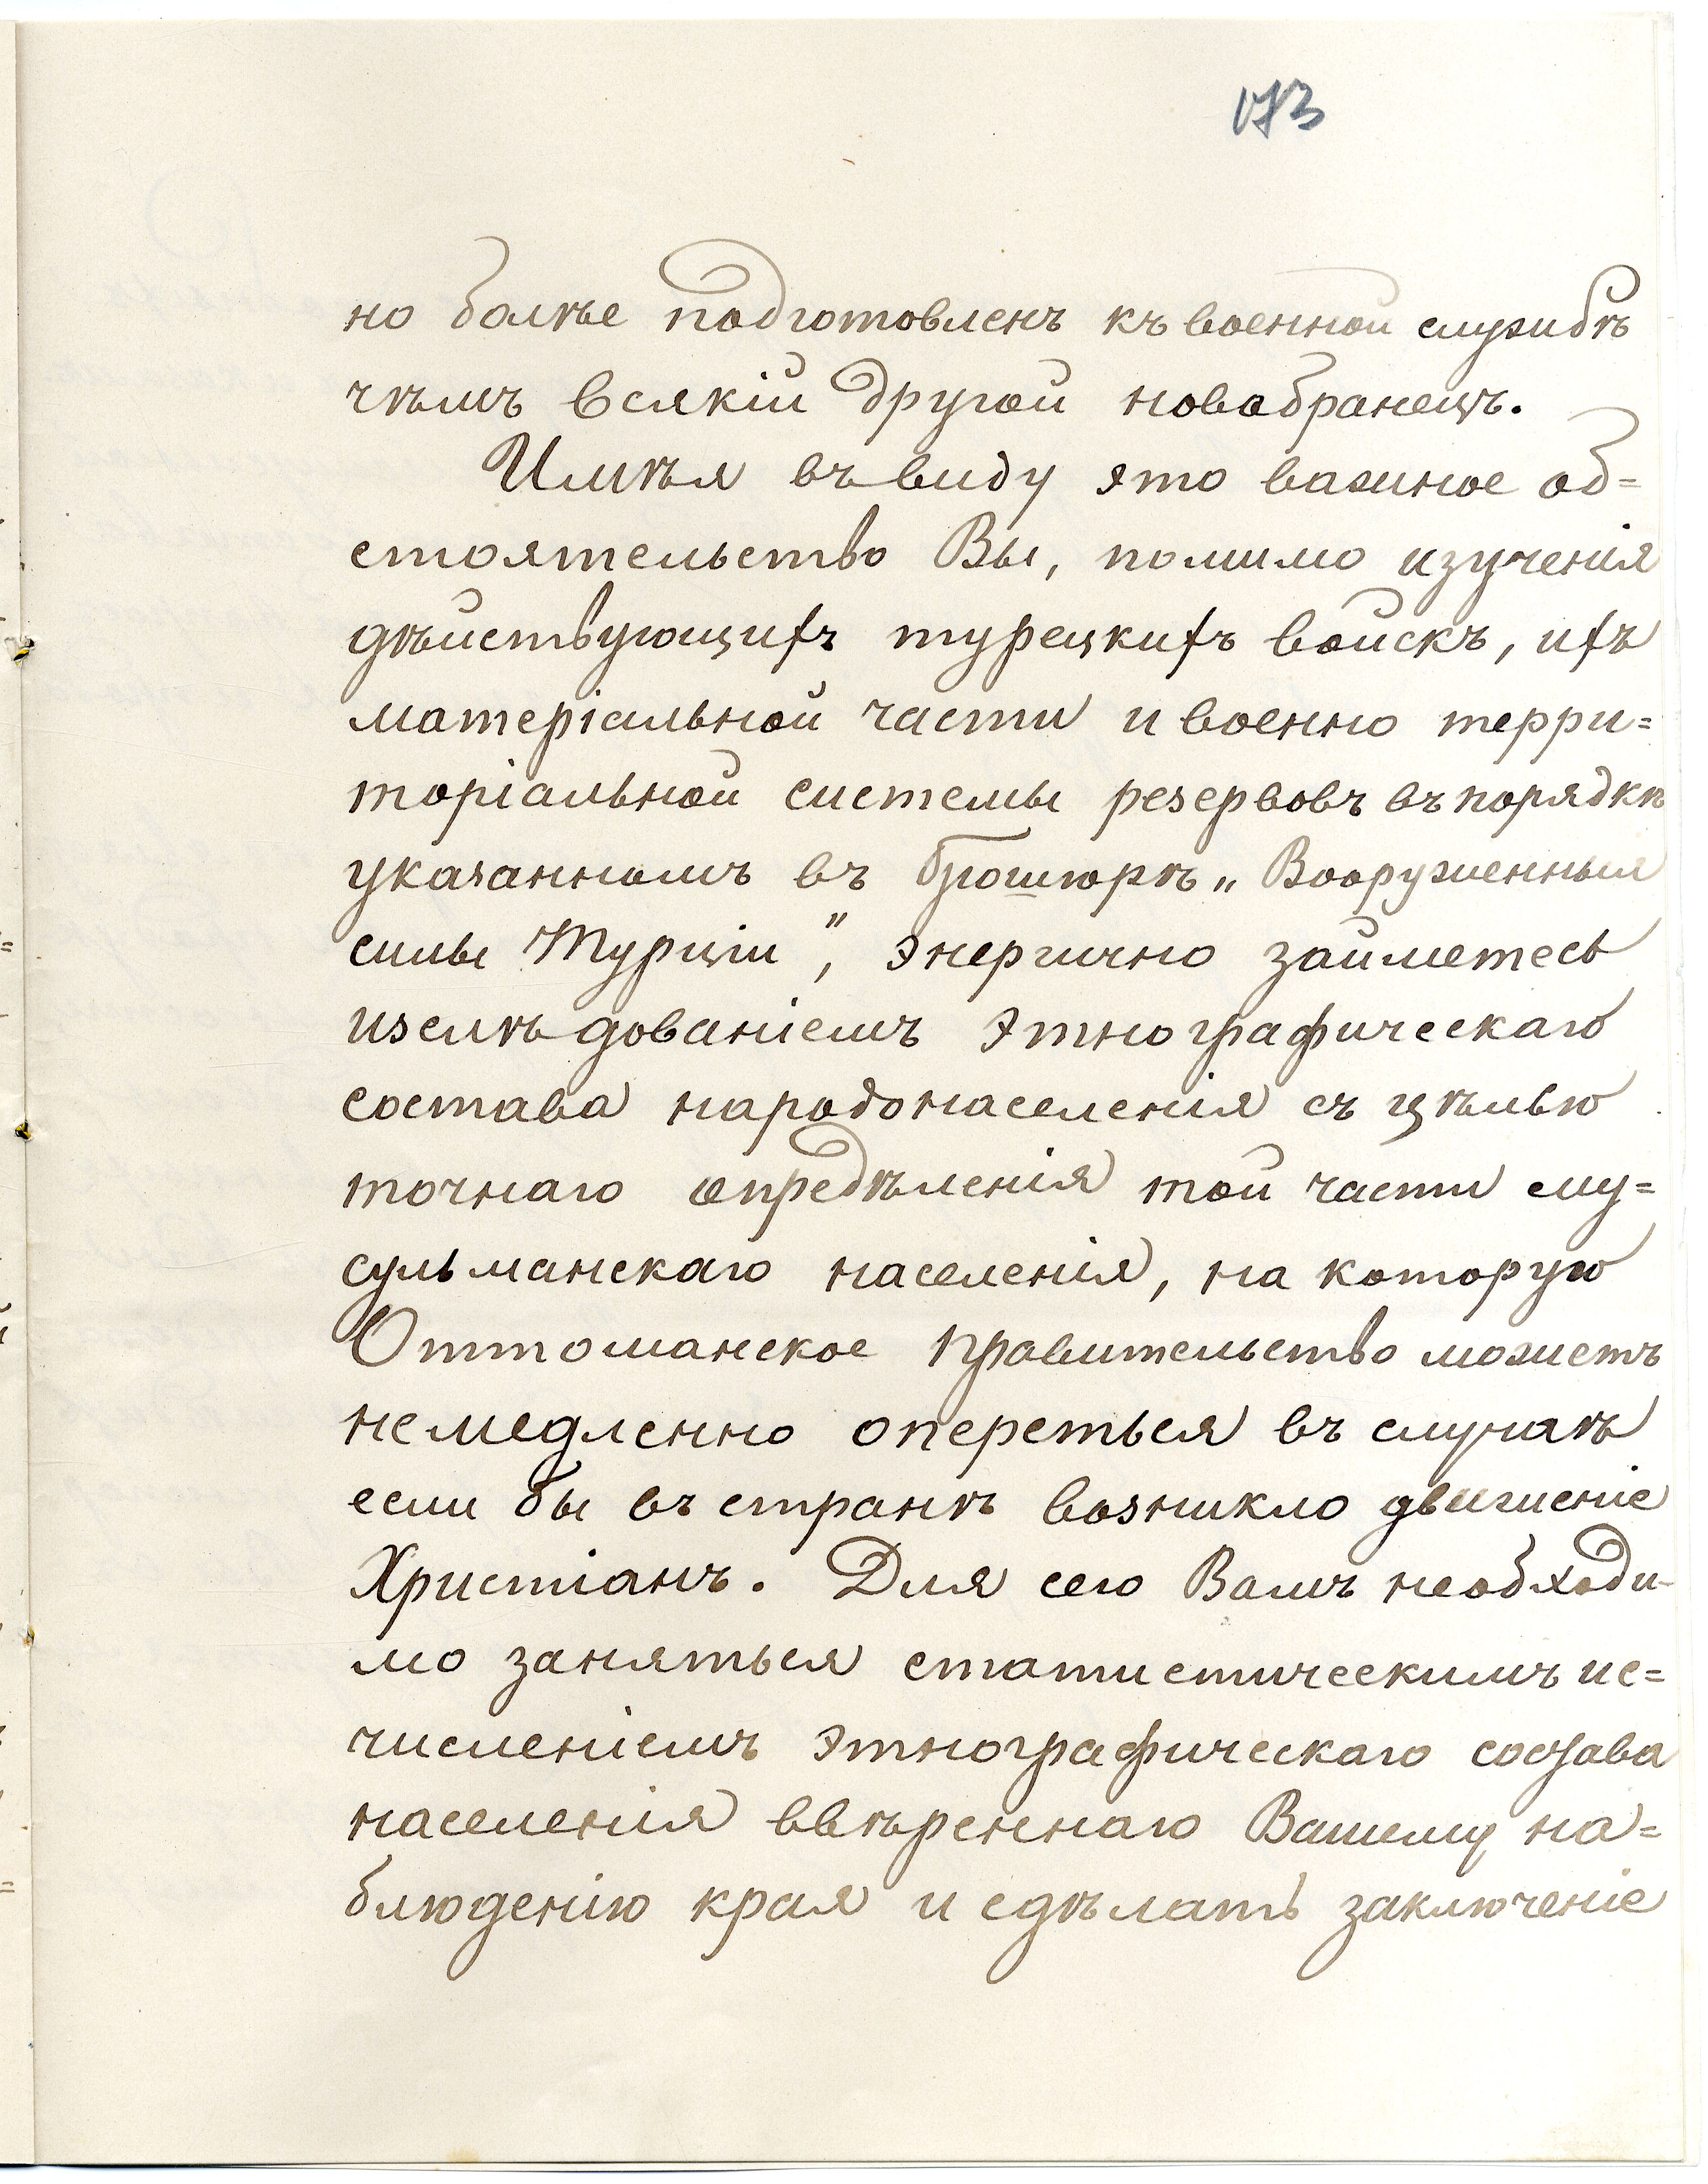 173
но болѣе подготовленъ къ военной службѣ
чѣмъ всякій другой новобранецъ.
Имѣя въ виду это важное об=
стоятельство Вы, помимо изученія
дѣйствующихъ турецкихъ войскъ, ихъ
матеріальной части и военно терри=
торіальной системы резервовъ въ порядкѣ
указанномъ въ брошюрѣ „Вооруженныя
силы Турціи", энергично займетесь
изслѣдованіемъ этнографическаго
состава народонаселенія съ цѣлью
точнаго опредѣленія той части му=
сульманскаго населенія, на которую
Оттоманское правительство можетъ
немедленно опереться въ случаѣ
если бы въ странѣ возникло движеніе
Христіанъ. Для сего Вамъ необходи-
мо заняться статистическимъ ис=
численіемъ этнографическаго состава
населенія ввѣреннаго Вашему на=
блюденію края и сдѣлать заключеніе